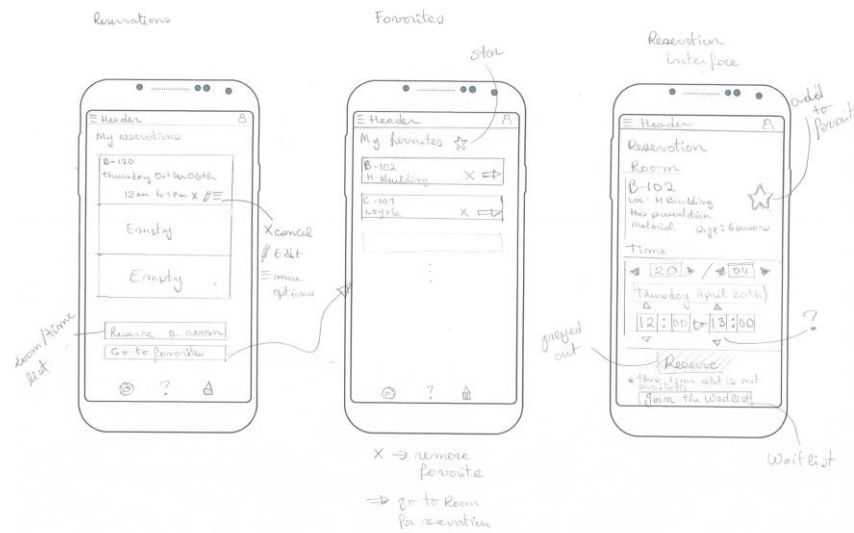 Reservations
Header
My reservations
B-120
Thursday Oct
12 to 1 Pm X
Empty
Empty
Reserve a room
Go to favorites
?
X cancel
Edit
more
options
room/time
list
Favorites
star
Header
My favorites
B-102
H-Building X
C-101
Loyola X
?
X → remove
favorite
⇒ go to Room
for reservation
Reservation
interface
add
to
favorit
Header
Reservation
Room
B-102
Loc: H Building
Has presentation
material size: 6
Time
20 / 04
Thursday April 20th
12:00 to 13:00
?
greyed
out
Reserve
* this time slot is not
available
Join the Waitlist
Waitlist